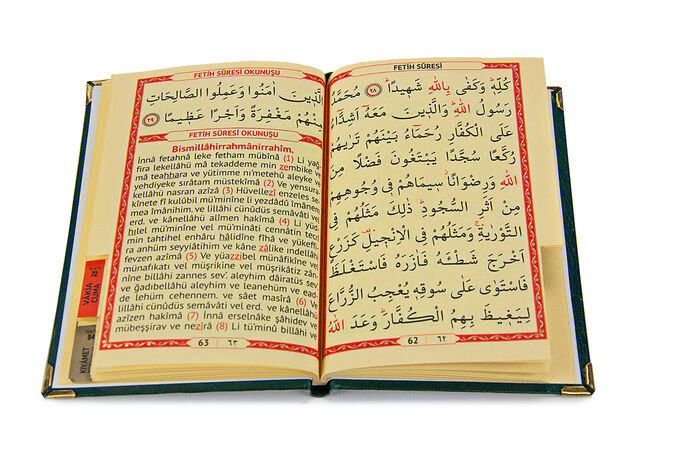 FETİH SÛRESİ
كُلِّهٖ وَكَفٰى بِاللّٰهِ شَهٖيدًا ﴿٢٨﴾ مُحَمَّدٌ
رَسُولُ اللّٰهِ وَالَّذٖينَ مَعَهُٓ اَشِدَّٓاءُ
عَلَى الْكُفَّارِ رُحَمَٓاءُ بَيْنَهُمْ تَرٰيهُمْ
رُكَّعًا سُجَّدًا يَبْتَغُونَ فَضْلًا مِنَ
اللّٰهِ وَرِضْوَانًا سٖيمَاهُمْ فٖى وُجُوهِهِمْ
مِنْ اَثَرِ السُّجُودِ ذٰلِكَ مَثَلُهُمْ فِى
التَّوْرٰيةِ وَمَثَلُهُمْ فِى الْاِنْجٖيلِ كَزَرْعٍ
اَخْرَجَ شَطْـَٔهُ فَاٰزَرَهُ فَاسْتَغْلَظَ
فَاسْتَوٰى عَلٰى سُوقِهٖ يُعْجِبُ الزُّرَّاعَ
لِيَغٖيظَ بِهِمُ الْكُفَّارَ وَعَدَ اللّٰهُ
62 ٦٢
FETİH SÛRESİ OKUNUŞU
الَّذٖينَ اٰمَنُوا وَعَمِلُوا الصَّالِحَاتِ
مِنْهُمْ مَغْفِرَةً وَاَجْرًا عَظٖيمًا ﴿٢٩﴾
FETİH SÛRESİ OKUNUŞU
Bismillâhirrahmânirrahîm.
İnnâ fetahnâ leke fetham mübînâ (1) Li yağ-
fira lekellâhü mâ tekaddeme min zembike ve
mâ teahhara ve yütimme ni'metehû aleyke ve
yehdiyeke sırâtam müstekîmâ (2) Ve yensura-
kellâhü nasran azîzâ (3) Hüvellezî enzeles se-
kînete fî kulûbil mü'minîne li yezdâdû îmânem
mea îmânihim. ve lillâhi cünûdüs semâvâti vel
erd. ve kânellâhü alîmen hakîmâ (4) Li yüd-
hılel mü'minîne vel mü'minâti cennâtin tecrî
min tahtihel enhâru hâlidîne fîhâ ve yükeffi-
ra anhüm seyyiâtihim ve kâne zâlike ındellâhi
fevzen azîmâ (5) Ve yüazzibel münâfikîne vel
münafikati vel müşrikîne vel müşrikâtiz zân-
nîne billâhi zannes sev'. aleyhim dâiratüs sev'
ve ğadıbellâhü aleyhim ve leanehüm ve ead-
de lehüm cehennem. ve sâet masîrâ (6) Ve
lillâhi cünûdüs semâvâti vel erd. ve kânellâhü
azîzen hakîmâ (7) İnnâ erselnâke şâhidev ve
mübeşşirav ve nezîrâ (8) Li tü'minû billâhi ve
63 ٦٣
72
VÂKIA
CUMA
94
KIYÂMET